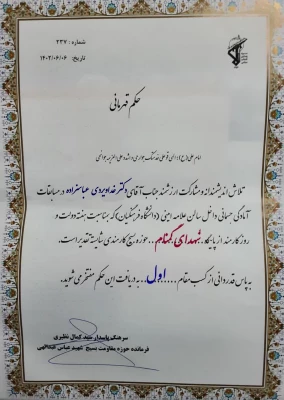 شماره : ۲۳۷
تاریخ: ۱۴۰۲/۰۶/۰۶
حکم قهرمانی
امام علی (ع):
تلاش اندیشمندانه و مشارکت ارزشمند جناب آقای دکتر خداویردی عباسزاده در مسابقات
آمادگی جسمانی داخل سالن علامه امینی (دانشگاه فرهنگیان) که بمناسبت هفته دولت و
روز کارمند از پایگاه شهدای گمنام .. حوزه بسیج کارمندی شایسته تقدیر است.
به پاس قدردانی از کسب مقام ..... اول ... به دریافت این حکم مفتخر می شوید.
سرهنگ پاسدار سید کمال نظیری
فرمانده حوزه مقاومت بسیج شهید عباس عبدالهی